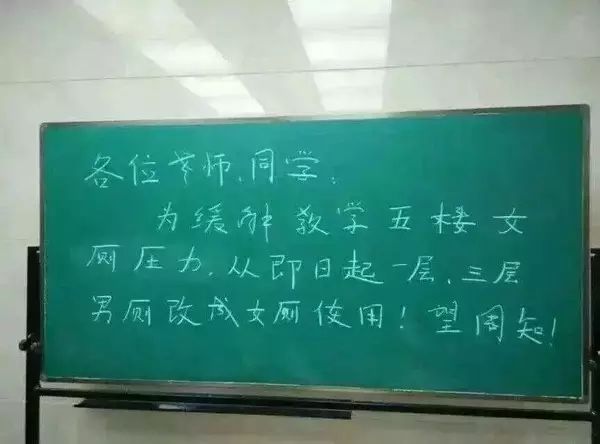 各位老师、同学：
为缓解教学五楼女
厕压力，从即日起一层、三层
男厕改成女厕使用！望周知！